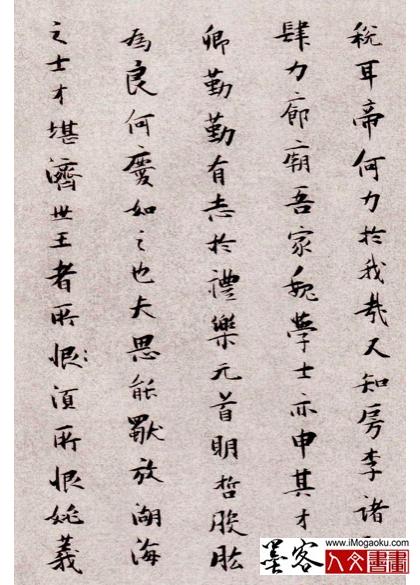 稅耳帝何力於我哉又知房李諸
肆力廊廟吾家魏學士亦申其才
卿勤勤有志於禮樂元首明哲股肱
為良何慶如之也夫思能放湖海
之士才堪濟世王者所恨須所恨姚義
墨客 人文書畫
www.iMogaoku.com